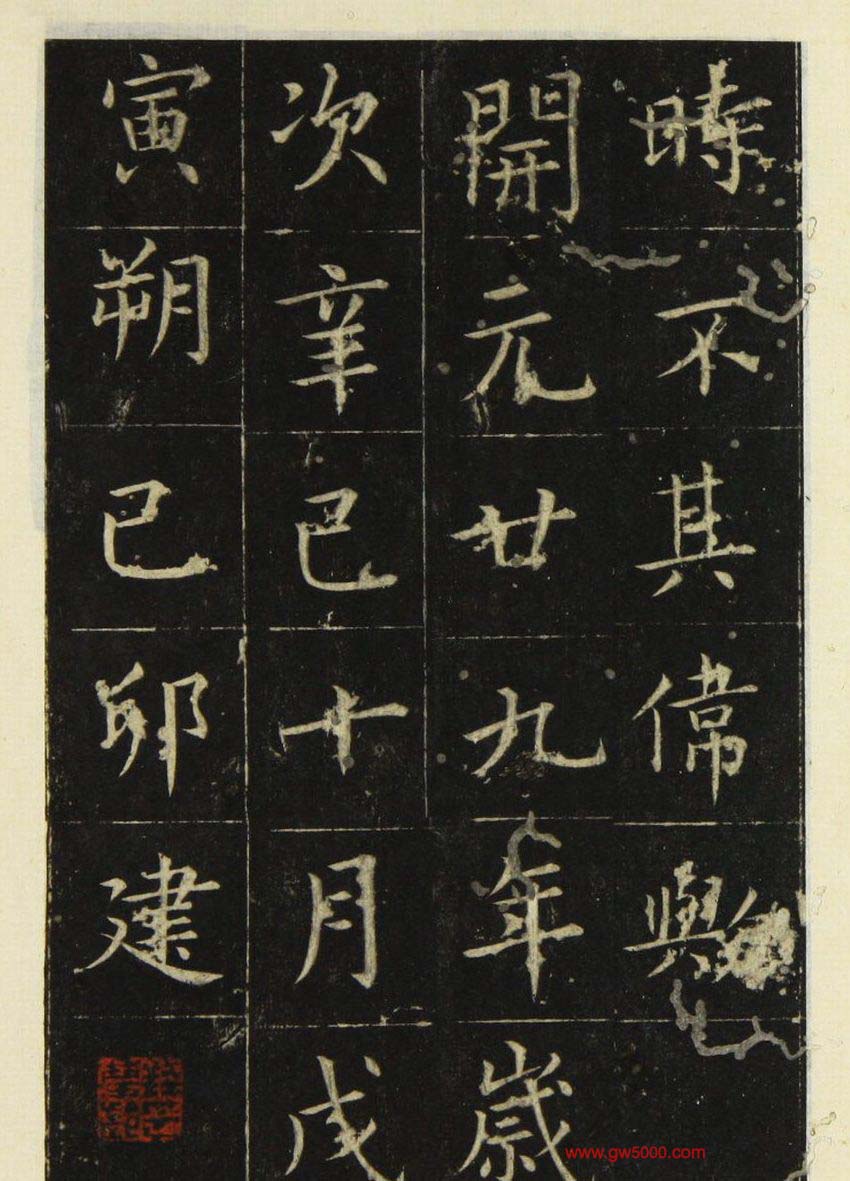 時不其偉歟
開元廿九年歲
次辛巳十月戊
寅朔己卯建
www.gw5000.com